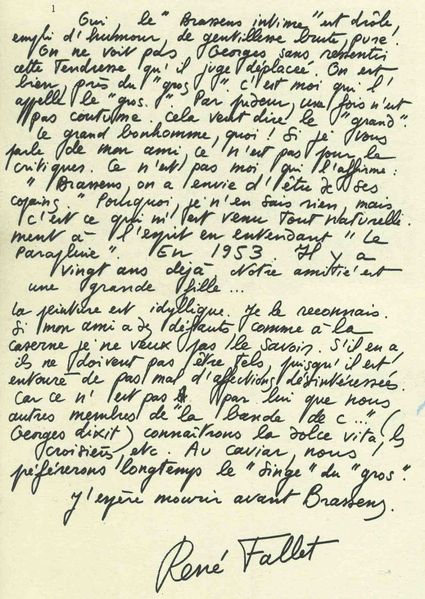 1
Oui le "Brassens intime" est drôle,
empli d'humour, de gentillesse brute, pure.
On ne voit pas Georges sans ressentir
cette tendresse qu'il juge déplacée. On est
bien, près du "gros". C'est moi qui l'
appelle le "gros". Par pudeur, une fois n'est
pas coutume. Cela veut dire le "grand".
Le grand bonhomme, quoi ! Si je vous
parle de mon ami, ce n'est pas pour la
critique. Ce n'est pas moi qui l'affirme :
"Brassens, on a envie d'être de ses
copains." Pourquoi, je n'en sais rien, mais
c'est ce qui m'est venu tout naturelle-
ment à l'esprit en entendant "Le
Parapluie". En 1953. Il y a
vingt ans déjà. Notre amitié est
une grande fille ...
La peinture est idyllique. Je le reconnais.
Si mon ami a des défauts comme à la
caserne je ne veux pas le savoir. S'il en a,
ils ne doivent pas être tels, puisqu'il est
entouré de pas mal d'affections désintéressées.
Car ce n'est pas par lui que nous
autres membres de "la bande de c..." (
Georges dixit) connaîtrons la dolce vita, les
croisières, etc. Au caviar, nous
préférerons longtemps le "singe" du "gros".
J'espère mourir avant Brassens.
René Fallet